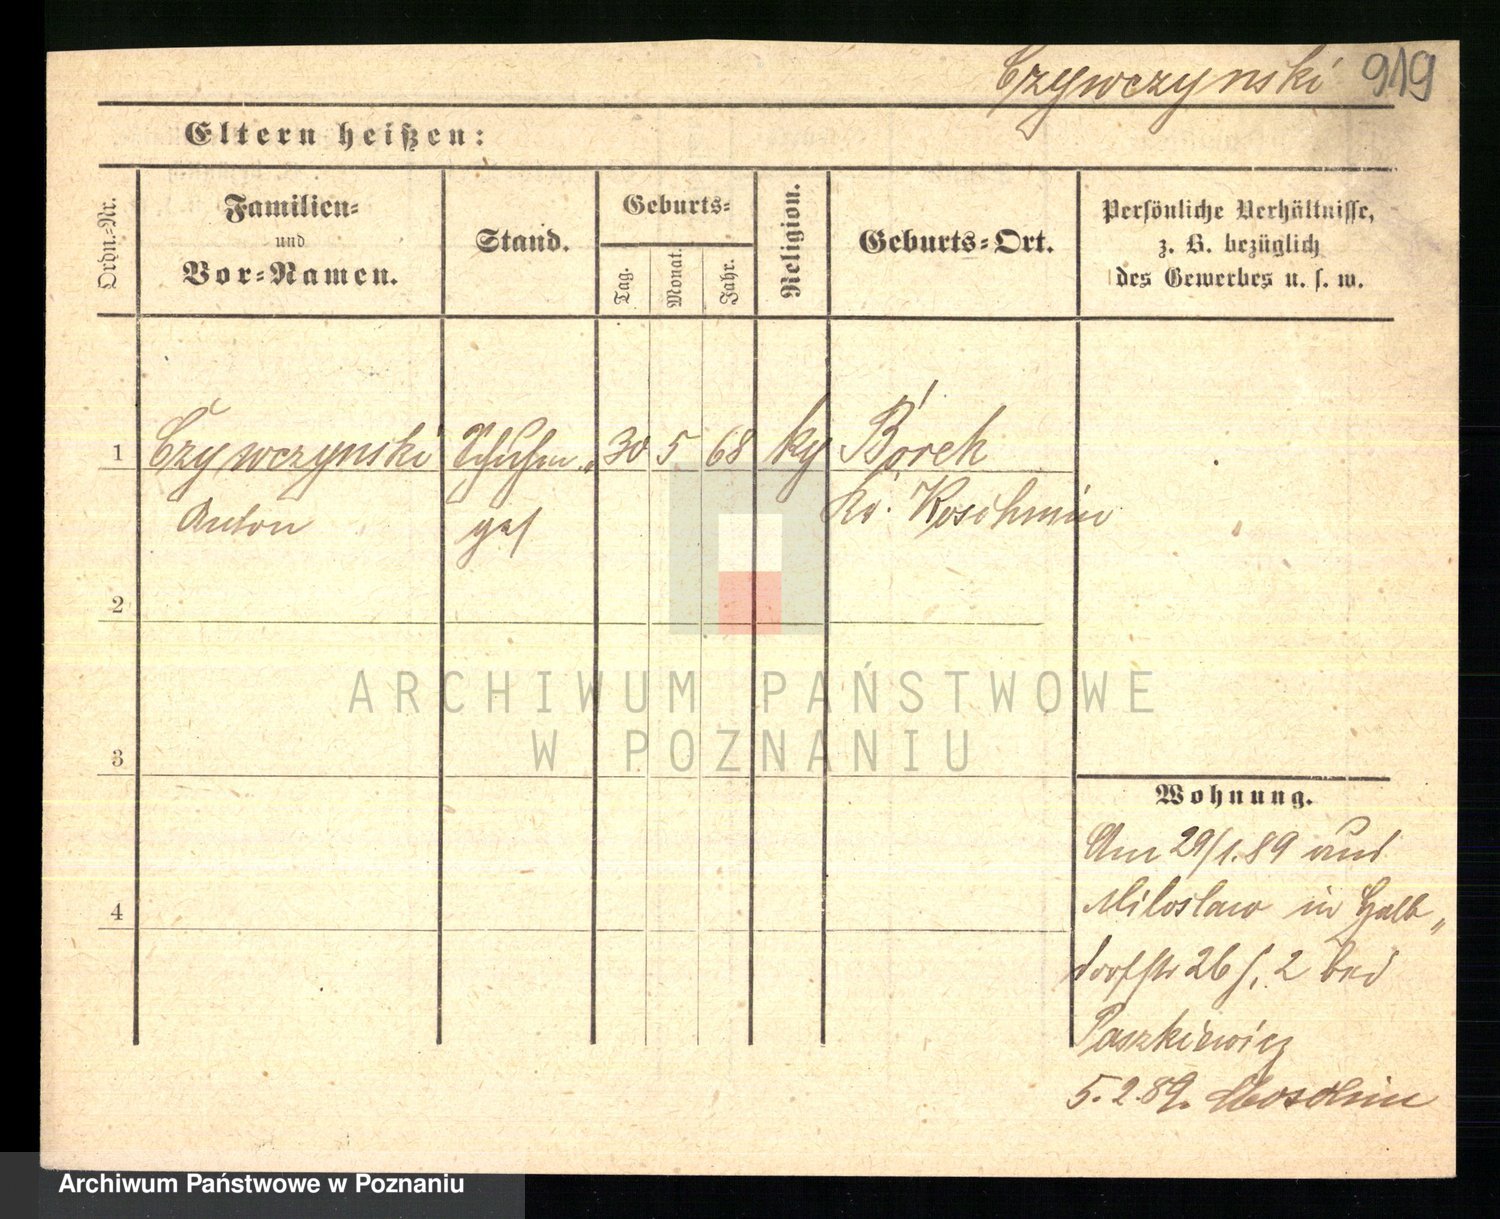 Czywczynski 919
Eltern heißen:
Ordn.-Nr.
Familien-
und
Vor-Namen.
Stand.
Geburts-
Tag.
Monat.
Jahr.
Religion.
Geburts-Ort.
Persönliche Verhältnisse,
z. B. bezüglich
des Gewerbes u. s. w.
1 Czywczynski 30 5 68 Borek
Anton ges Kr. Koschmin
2
3
4
Wohnung.
Am 29/1.89 aus
Miloslaw in Halb-
dorfstr 26 2 bei
Paszkiewicz
5.2.89. Moschin
ARCHIWUM PAŃSTWOWE
W POZNANIU
Archiwum Państwowe w Poznaniu